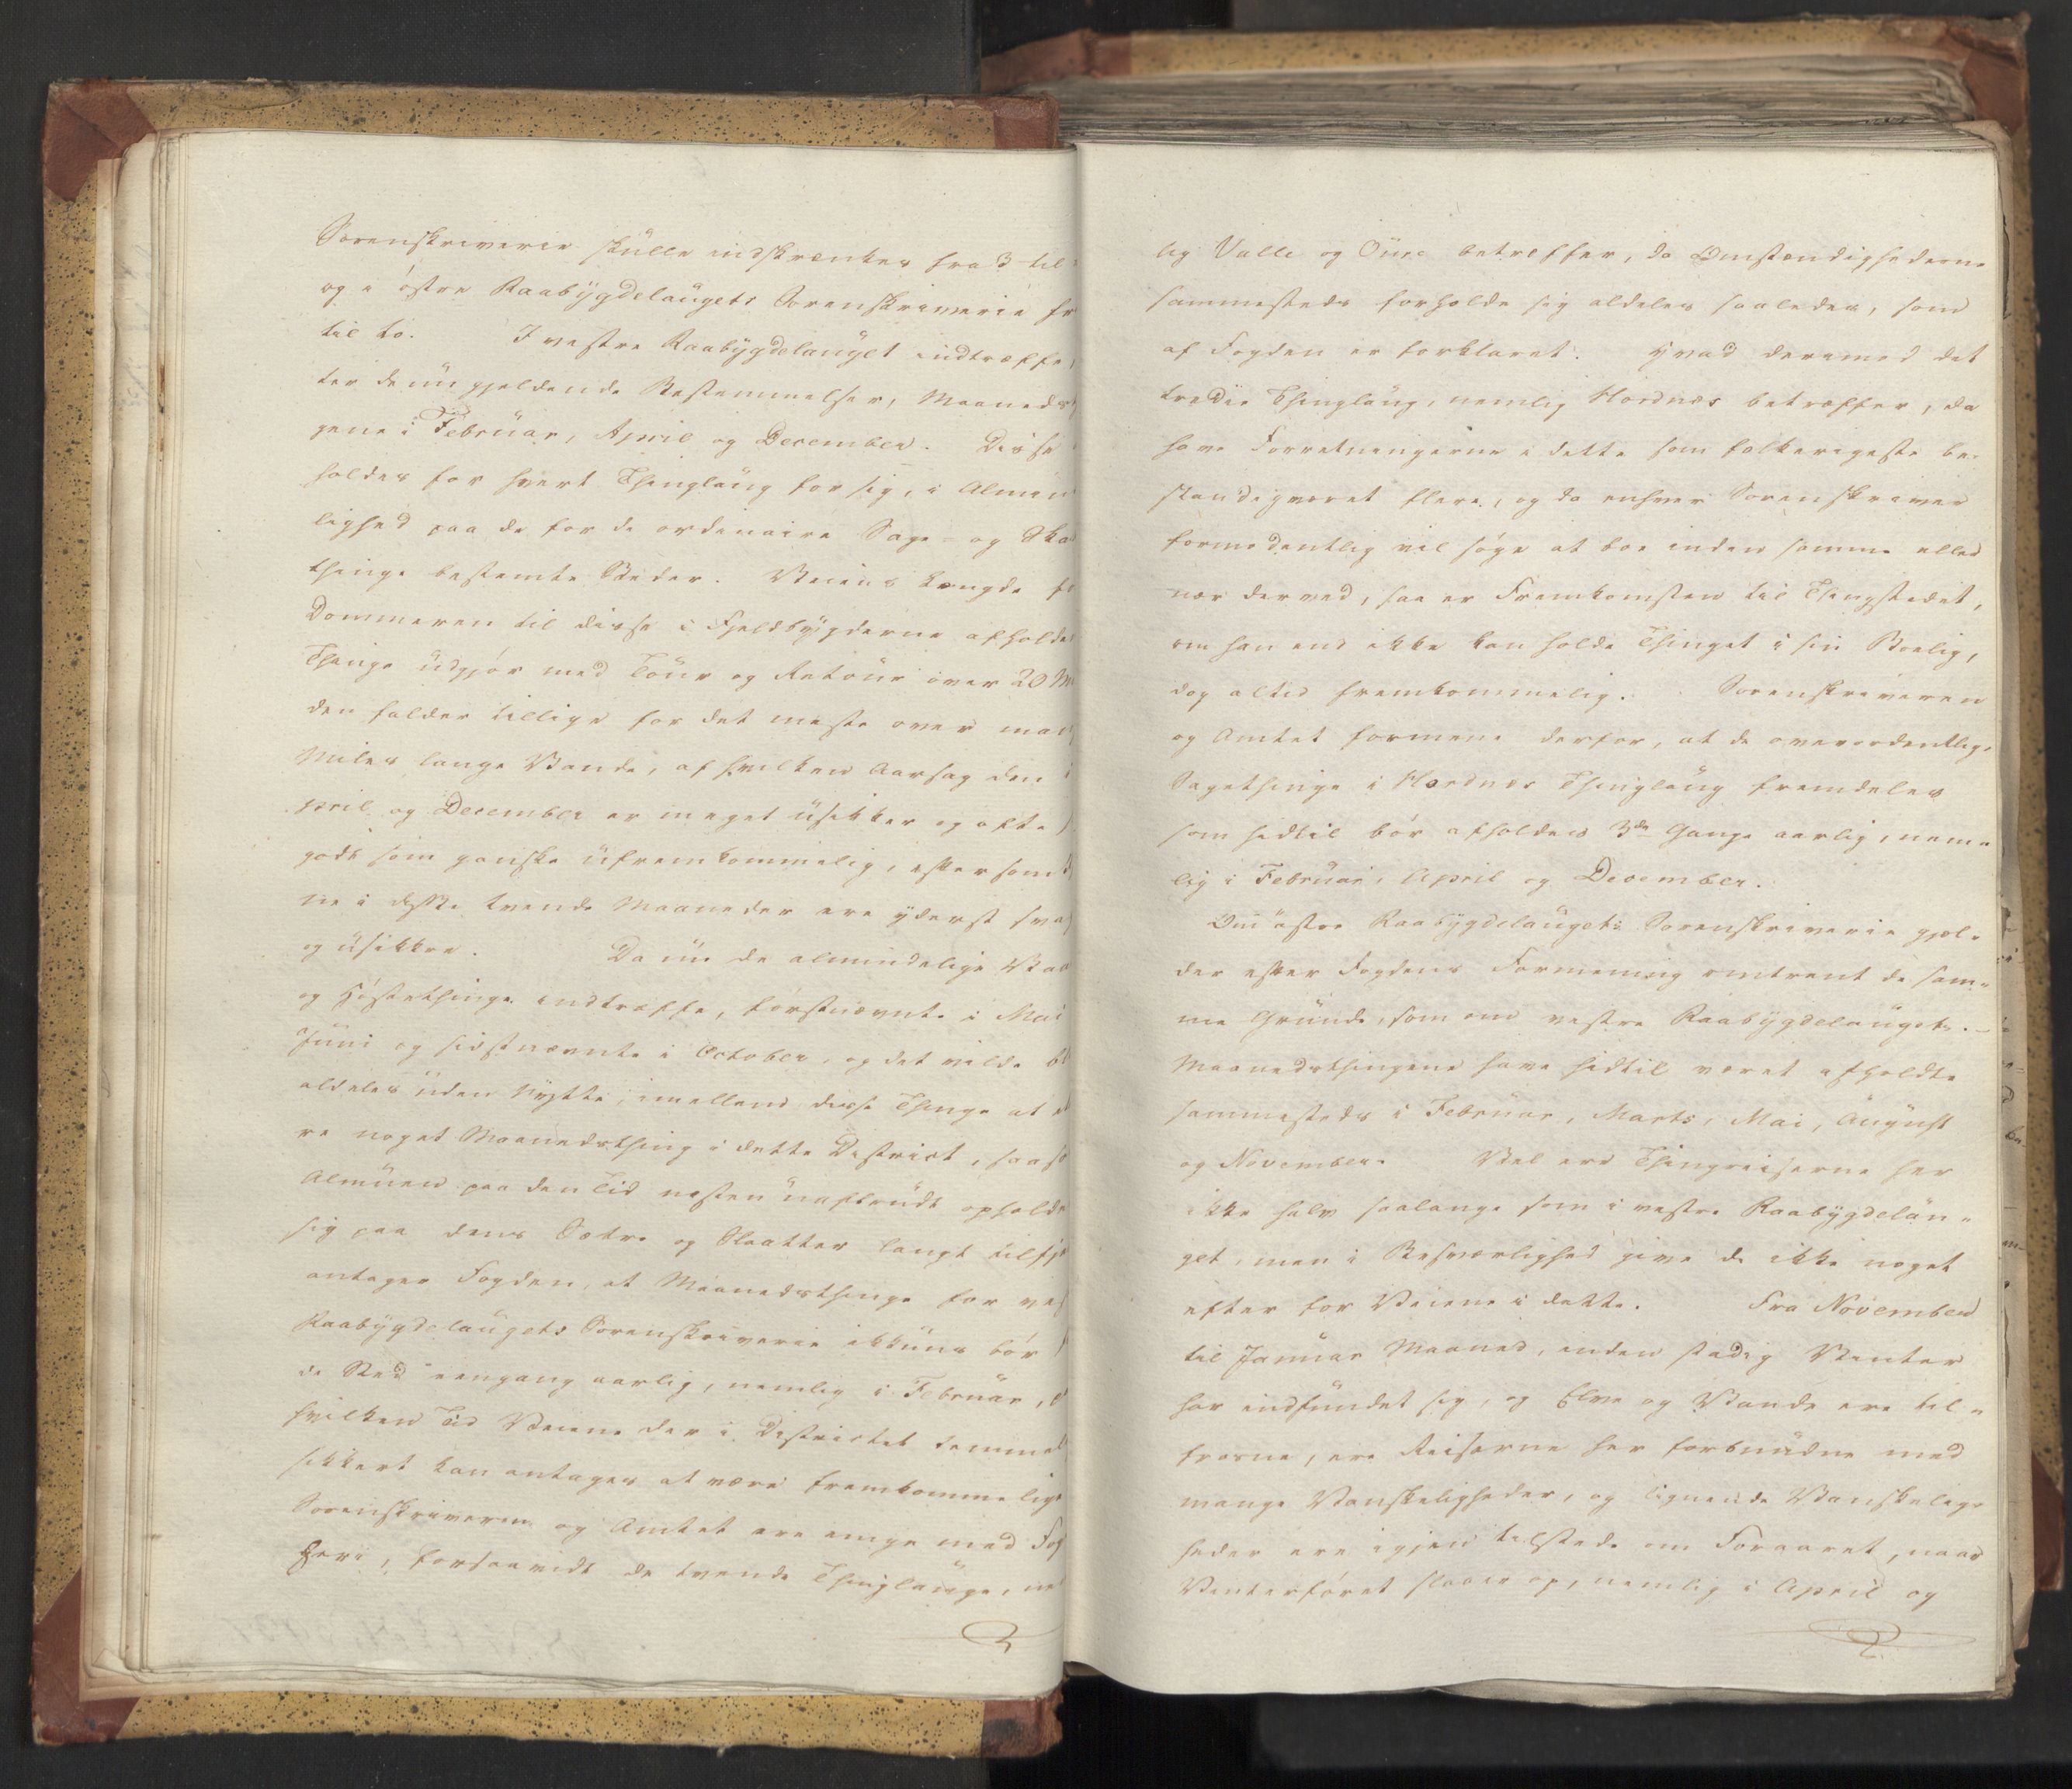 Sorenskriverie skulle indskrænkes fra 3 til
og i östre Raabÿgdelaugets Sorenskriverie fr
til to. I vestre Raabÿgdelauget indtræffe
ter de nu gjeldende Bestemmelser, Maaneds
gene i Februar, April og December. Disse
holdes for hvert Thinglaug for sig, i Almin
lighed paa de for de ordinaire Sage- og Ska
thinge bestemte Steder. Veiens Længde fo
Dommeren til disse i Fjeldbÿgderne afholde
Thinge udgjör med Tour og Retour over 20 M
den falder tillige for det meste over man
Miles lange Vande, af hvilken Aarsag den i
pril og December er meget usikker og ofte s
godt som ganske ufremkommelig, eftersom
ne i disse tvende Maaneder ere ÿderst sva
og usikkre. Da nu de almindelige Vaa
og Höstethinge indtræffe, förstnævnte i Mai
Juni og sidstnævnte i October, og det vilde bl
aldeles uden Nÿtte, imellem disse Thinge at
re noget Maanedsthing i dette District, saaso
Almuen paa den Tid næsten uafbrudt opholde
sig paa dens Sætre og Slaatter langt tilfje
antager Fogden, at Maanedsthinge for ves
Raabÿgdelaugets Sorenskriverie ikkuns bör
de Sted eengang aarlig, nemlig i Februar,
hvilken Tid Veiene der i Districtet temmel
sikkert kan antages at være fremkommelige
Sorenskriveren og Amtet ere enige med Fog
heri, forsaavidt de tvende Thinglauge, ne
lig Valle og Öuse betræffer, da Omstændighederne
sammesteds forholde sig aldeles saaledes, som
af Fogden er forklaret. Hvad derimod det
tredie Thinglaug, nemlig Hordnes betræffer, da
have Forretningerne i dette som folkerigeste be-
standig været flere, og da enhver Sorenskriver
formodentlig vil söge at boe inden samme eller
nær derved, saa er Fremkomsten til Thingstedet,
om han end ikke kan holde Thinget i sin Boelig,
dog altid fremkommelig. Sorenskriveren
og Amtet formene derfor, at de overordentlige
Sagethinge i Hordnes Thinglaug fremdeles
som hidtil bör afholdes 3de Gange aarlig, nem-
lig i Februar, April og December.
Om östre Raabÿgdelaugets Sorenskriverie gjel-
der efter Fogdens Formening omtrent de sam-
me Grunde, som om vestre Raabÿgdelaugets.
Maanedsthingene have hidtil været afholdte
sammesteds i Februar, Marts, Mai, August
og November. Vel ere Thingreiserne her
ikke halv saalange som i vestre Raabÿgdelau-
get, men i Besværlighed give de ikke noget
efter for Veiene i dette. Fra November
til Januar Maaned, inden stadig Vinter
har indfundet sig, og Elve og Vande ere til-
frosne, ere Reiserne her forbundne med
mange Vanskeligheder, og lignende Vanskelig-
heder ere igjen tilstede om Foraaret, naar
Vinterföret slaaer op, nemlig i April og